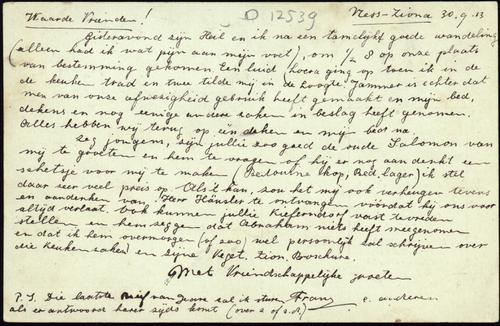 D 12539
Waarde Vrienden! Ness-Ziona 30.9.13
Gisteravond zijn Heil en ik na een tamelijk goede wandeling
(alleen had ik wat pijn aan mijn voet), om ½ 8 op onze plaats
van bestemming gekomen. Een luid hoera ging op toen ik in de
de keuken trad en twee tilde mij in de hoogte. Jammer is echter dat
men van onze afwezigheid gebruik heeft gemaakt en mijn bed,
dekens en nog eenige andere zaken in beslag heeft genomen.
Alles hebben wij terug op één deken en mijn bed na.
Zeg jongens, zijn jullie zoo goed de oude Salomon van
mij te groeten en hem te vragen of hij er nog aan denkt een
schetsje voor mij te maken (Bedouine kop, Bed. lager) ik stel
daar zeer veel prijs op. Als 't kan, zou het mij ook verheugen tevens
een aandenken van Heer Häusler te ontvangen vóórdat hij ons voor
altijd verlaat. Ook kunnen jullie Kiefendorf vast tevreden
stellen en hem zeggen dat Abraham niets heeft meegenomen
en dat ik hem overmorgen (of zoo) wel persoonlijk zal schrijven over
die keuken zaken en zijne Veget. Zion. Brochure.
Met Vriendschappelijke groeten
Franz
P.S. Die laatste brief van zal ik sturen e. anderen
als er antwoord komt (over 2 of 3 d.)